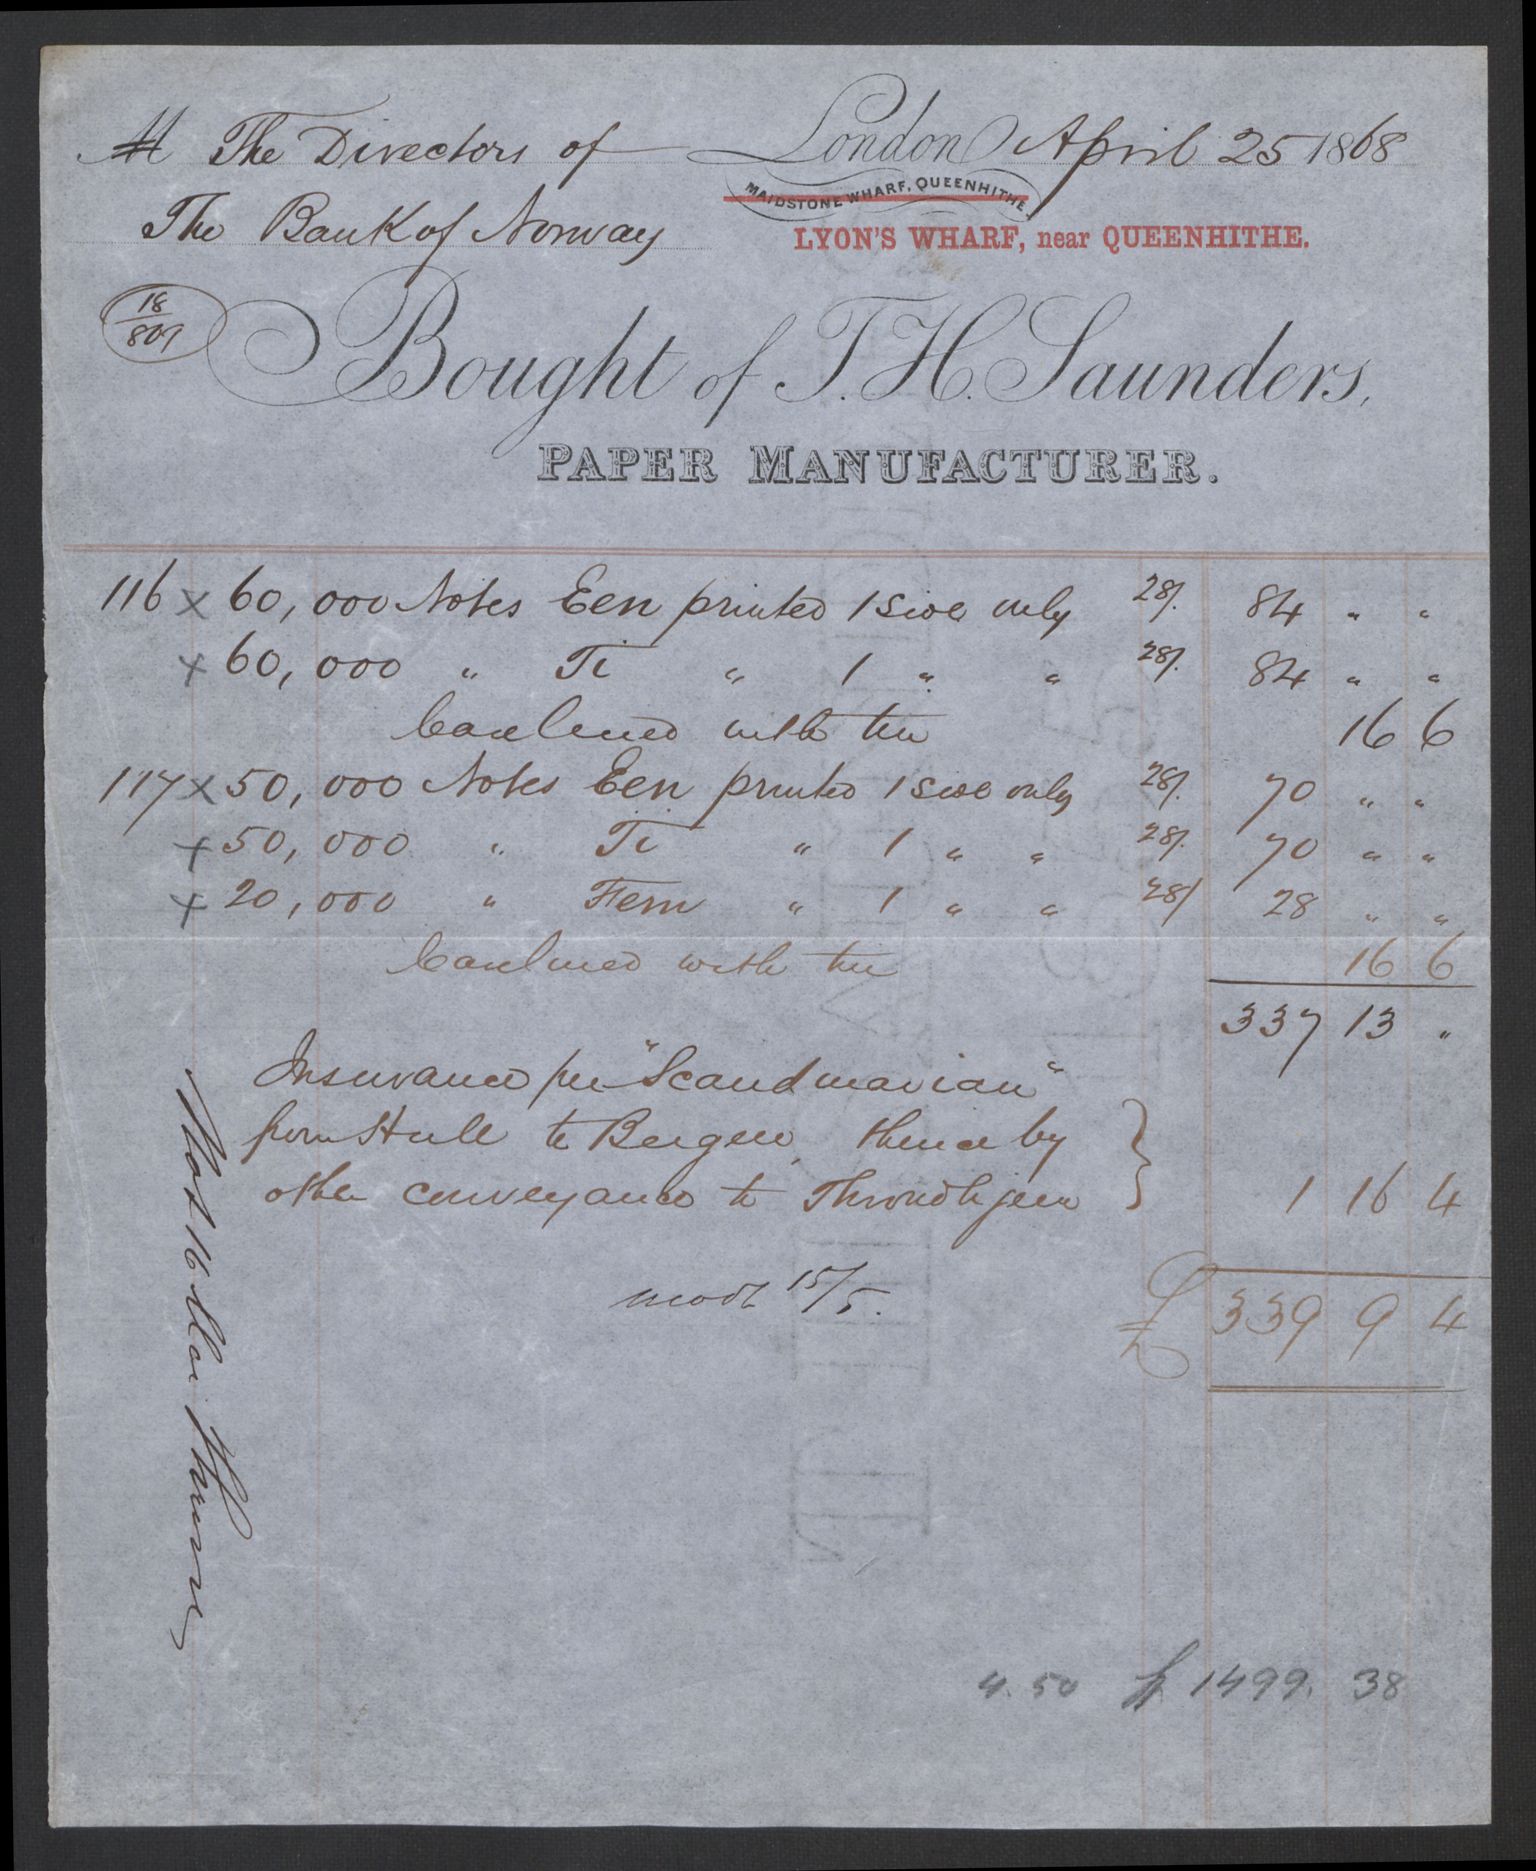 M The Directors of London April 25 1868
MAIDSTONE WHARF, QUEENHITHE.
The Bank of Norway
LYON'S WHARF, near QUEENHITHE.
18
807
Bought of T. H. Saunders,
PAPER MANUFACTURER.
116 x 60,000 Notes Een printed 1 side only 28/. 84 " "
x 60,000 " Ti " 1 " " 28/. 84 " "
Case lined with tin 16 6
117 x 50,000 Notes Een printed 1 side only 28/. 70 " "
x 50,000 " Ti " 1 " " 28/. 70 " "
x 20,000 " Fem " 1 " " 28/ 28 " "
Case lined with tin 16 6
337 13 "
Insurance per "Scandinavian"
from Hull to Bergen, thence by
other conveyance to Throndhjem } 1 16 4
modt 15/5.
£ 339 9 4
4.50 1499. 38